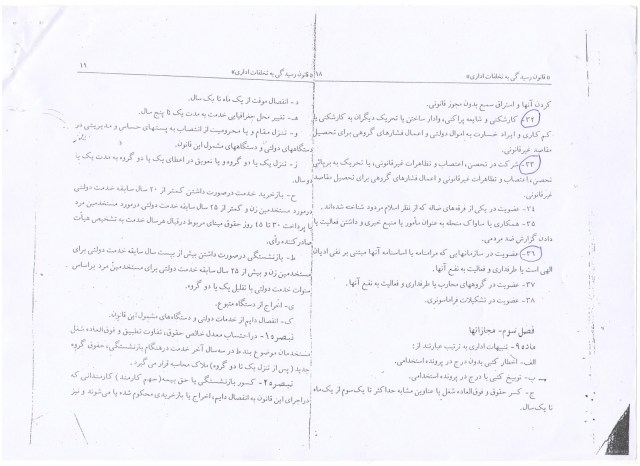 «قانون رسیدگی به تخلفات اداری» ۱۸
کردن آنها و استراق سمع بدون مجوز قانونی.
۳۲- کارشکنی و شایعه پراکنی، وادار ساختن یا تحریک دیگران به کارشکنی یا
کم کاری و ایراد خسارت به اموال دولتی و اعمال فشارهای گروهی برای تحصیل
مقاصد غیرقانونی.
۳۳- شرکت در تحصن، اعتصاب و تظاهرات غیرقانونی، یا تحریک به برپائی
تحصن، اعتصاب و تظاهرات غیرقانونی و اعمال فشارهای گروهی برای تحصیل مقاصد
غیرقانونی.
۳۴- عضویت در یکی از فرقه‌های ضاله که از نظر اسلام مردود شناخته شده‌اند.
۳۵- همکاری با ساواک منحله به عنوان مأمور یا منبع خبری و داشتن فعالیت یا
دادن گزارش ضد مردمی.
۳۶- عضویت در سازمانهایی که مرامنامه یا اساسنامه آنها مبتنی بر نفی ادیان
الهی است یا طرفداری و فعالیت به نفع آنها.
۳۷- عضویت در گروههای محارب یا طرفداری و فعالیت به نفع آنها.
۳۸- عضویت در تشکیلات فراماسونری.
فصل سوم- مجازاتها
ماده ۹- تنبیهات اداری به ترتیب عبارتند از:
الف- اخطار کتبی بدون درج در پرونده استخدامی.
ب- توبیخ کتبی با درج در پرونده استخدامی.
ج- کسر حقوق و فوق‌العاده شغل یا عناوین مشابه حداکثر تا یک‌سوم از یک‌ماه
تا یک‌سال.
«قانون رسیدگی به تخلفات اداری» ۱۹
د- انفصال موقت از یک ماه تا یک سال.
هـ- تغییر محل جغرافیایی خدمت به مدت یک تا پنج سال.
و- تنزل مقام و یا محرومیت از انتصاب به پستهای حساس و مدیریتی در
دستگاههای دولتی و دستگاههای مشمول این قانون.
ز- تنزل یک یا دو گروه و یا تعویق در اعطای یک یا دو گروه به مدت یک یا
دو سال.
ح- بازخرید خدمت درصورت داشتن کمتر از ۲۰ سال سابقه خدمت دولتی
درمورد مستخدمین زن و کمتر از ۲۵ سال سابقه خدمت دولتی درمورد مستخدمین مرد
با پرداخت ۳۰ تا ۴۵ روز حقوق مبنای مربوط درقبال هرسال خدمت به تشخیص هیأت
صادرکننده رأی.
ط- بازنشستگی درصورت داشتن بیش از بیست سال سابقه خدمت دولتی برای
مستخدمین زن و بیش از ۲۵ سال سابقه خدمت دولتی برای مستخدمین مرد براساس
سنوات خدمت دولتی با تقلیل یک یا دو گروه.
ی- اخراج از دستگاه متبوع.
ک- انفصال دایم از خدمات دولتی و دستگاه‌های مشمول این قانون.
تبصره ۱- دراحتساب معدل خالص حقوق، تفاوت تطبیق و فوق‌العاده شغل
مستخدمان موضوع بند ط در سه‌سال آخر خدمت درهنگام بازنشستگی، حقوق گروه
جدید (پس از تنزل یک تا دو گروه) ملاک محاسبه قرار می‌گیرد.
تبصره ۲- کسور بازنشستگی یا حق بیمه (سهم کارمند) کارمندانی که
دراجرای این قانون به انفصال دایم، اخراج یا بازخریدی محکوم شده یا می‌شوند و نیز